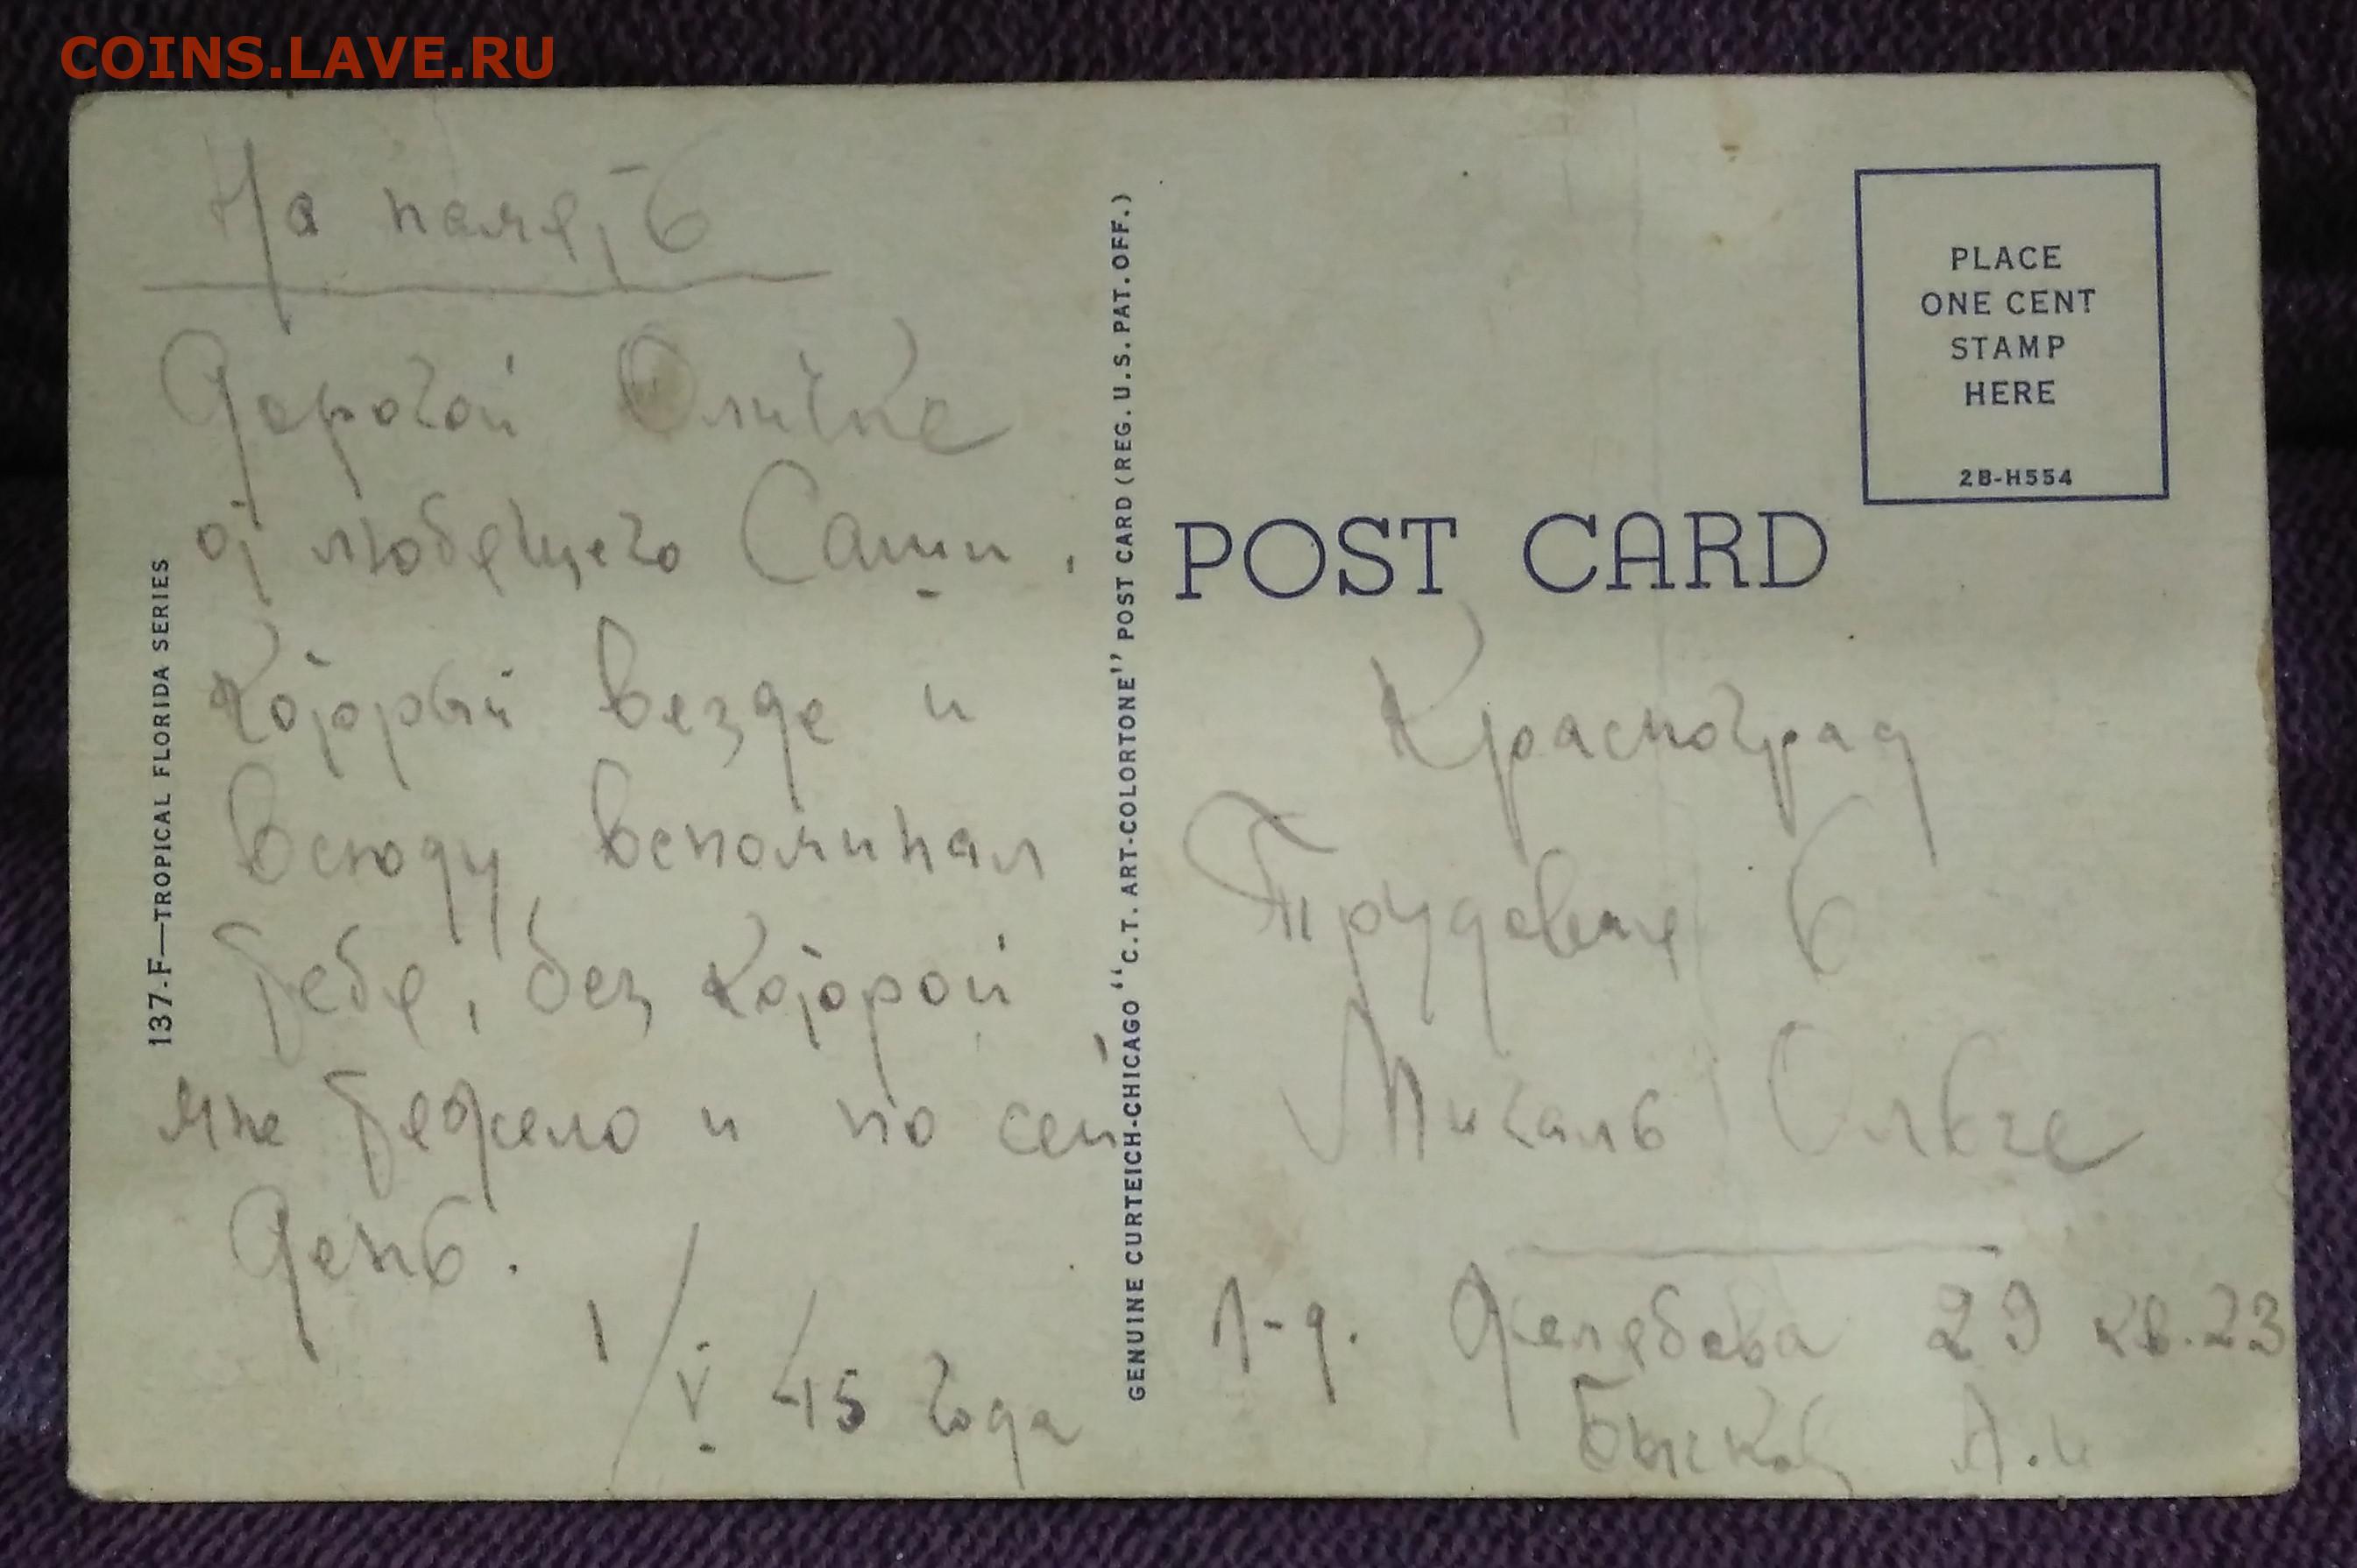 COINS.LAVE.RU
На память
Дорогой Оличке
от любящего Саши.
который везде и
всюду вспоминал
тебя, без которой
мне тежело и по сей
день.
1/V 45 года
137-F—TROPICAL FLORIDA SERIES
GENUINE CURTEICH-CHICAGO "C.T. ART-COLORTONE" POST CARD (REG. U.S. PAT. OFF.)
PLACE
ONE CENT
STAMP
HERE
2B-H554
POST CARD
Красноград
6
Ольге
Л-д. 29 кв. 23